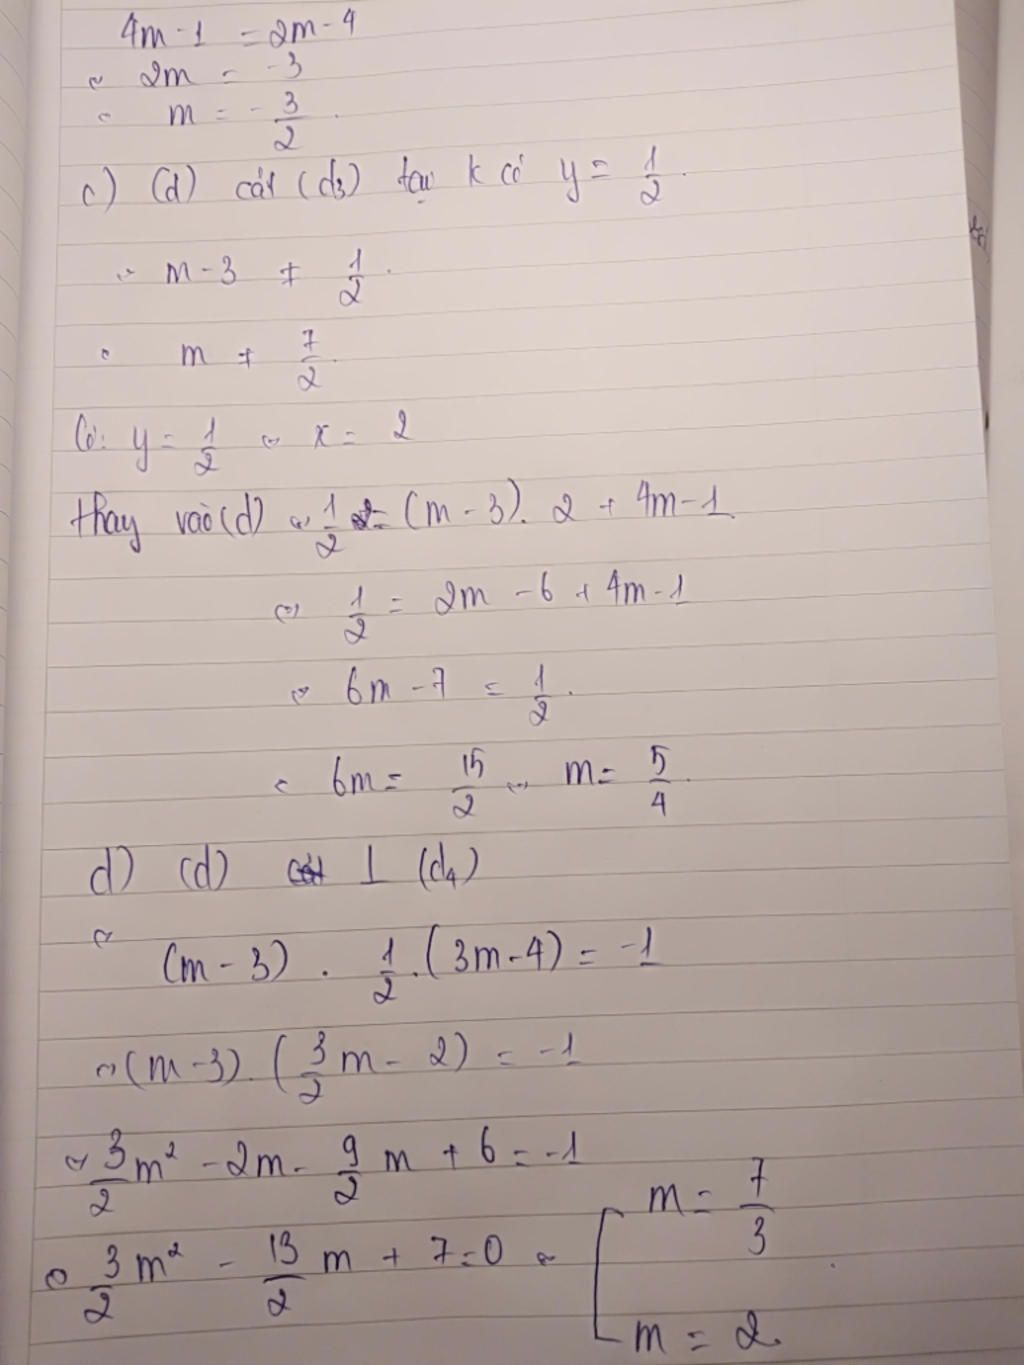 4m - 1 = 2m - 4
⇔ 2m = -3
⇔ m = -3/2.
c) (d) cắt (d₃) tại K có y = 1/2.
⇔ m - 3 ≠ 1/2.
⇔ m ≠ 7/2.
Có: y = 1/2 ⇔ x = 2
thay vào (d) ⇔ 1/2 = (m - 3). 2 + 4m - 1
⇔ 1/2 = 2m - 6 + 4m - 1
⇔ 6m - 7 = 1/2.
⇔ 6m = 15/2 ⇔ m = 5/4.
d) (d) ⊥ (d₄)
⇔ (m - 3) . 1/2 . (3m - 4) = -1
⇔ (m - 3). (3/2 m - 2) = -1
⇔ 3/2 m² - 2m - 9/2 m + 6 = -1
⇔ 3/2 m² - 13/2 m + 7 = 0 ⇔ [ m = 7/3
m = 2.